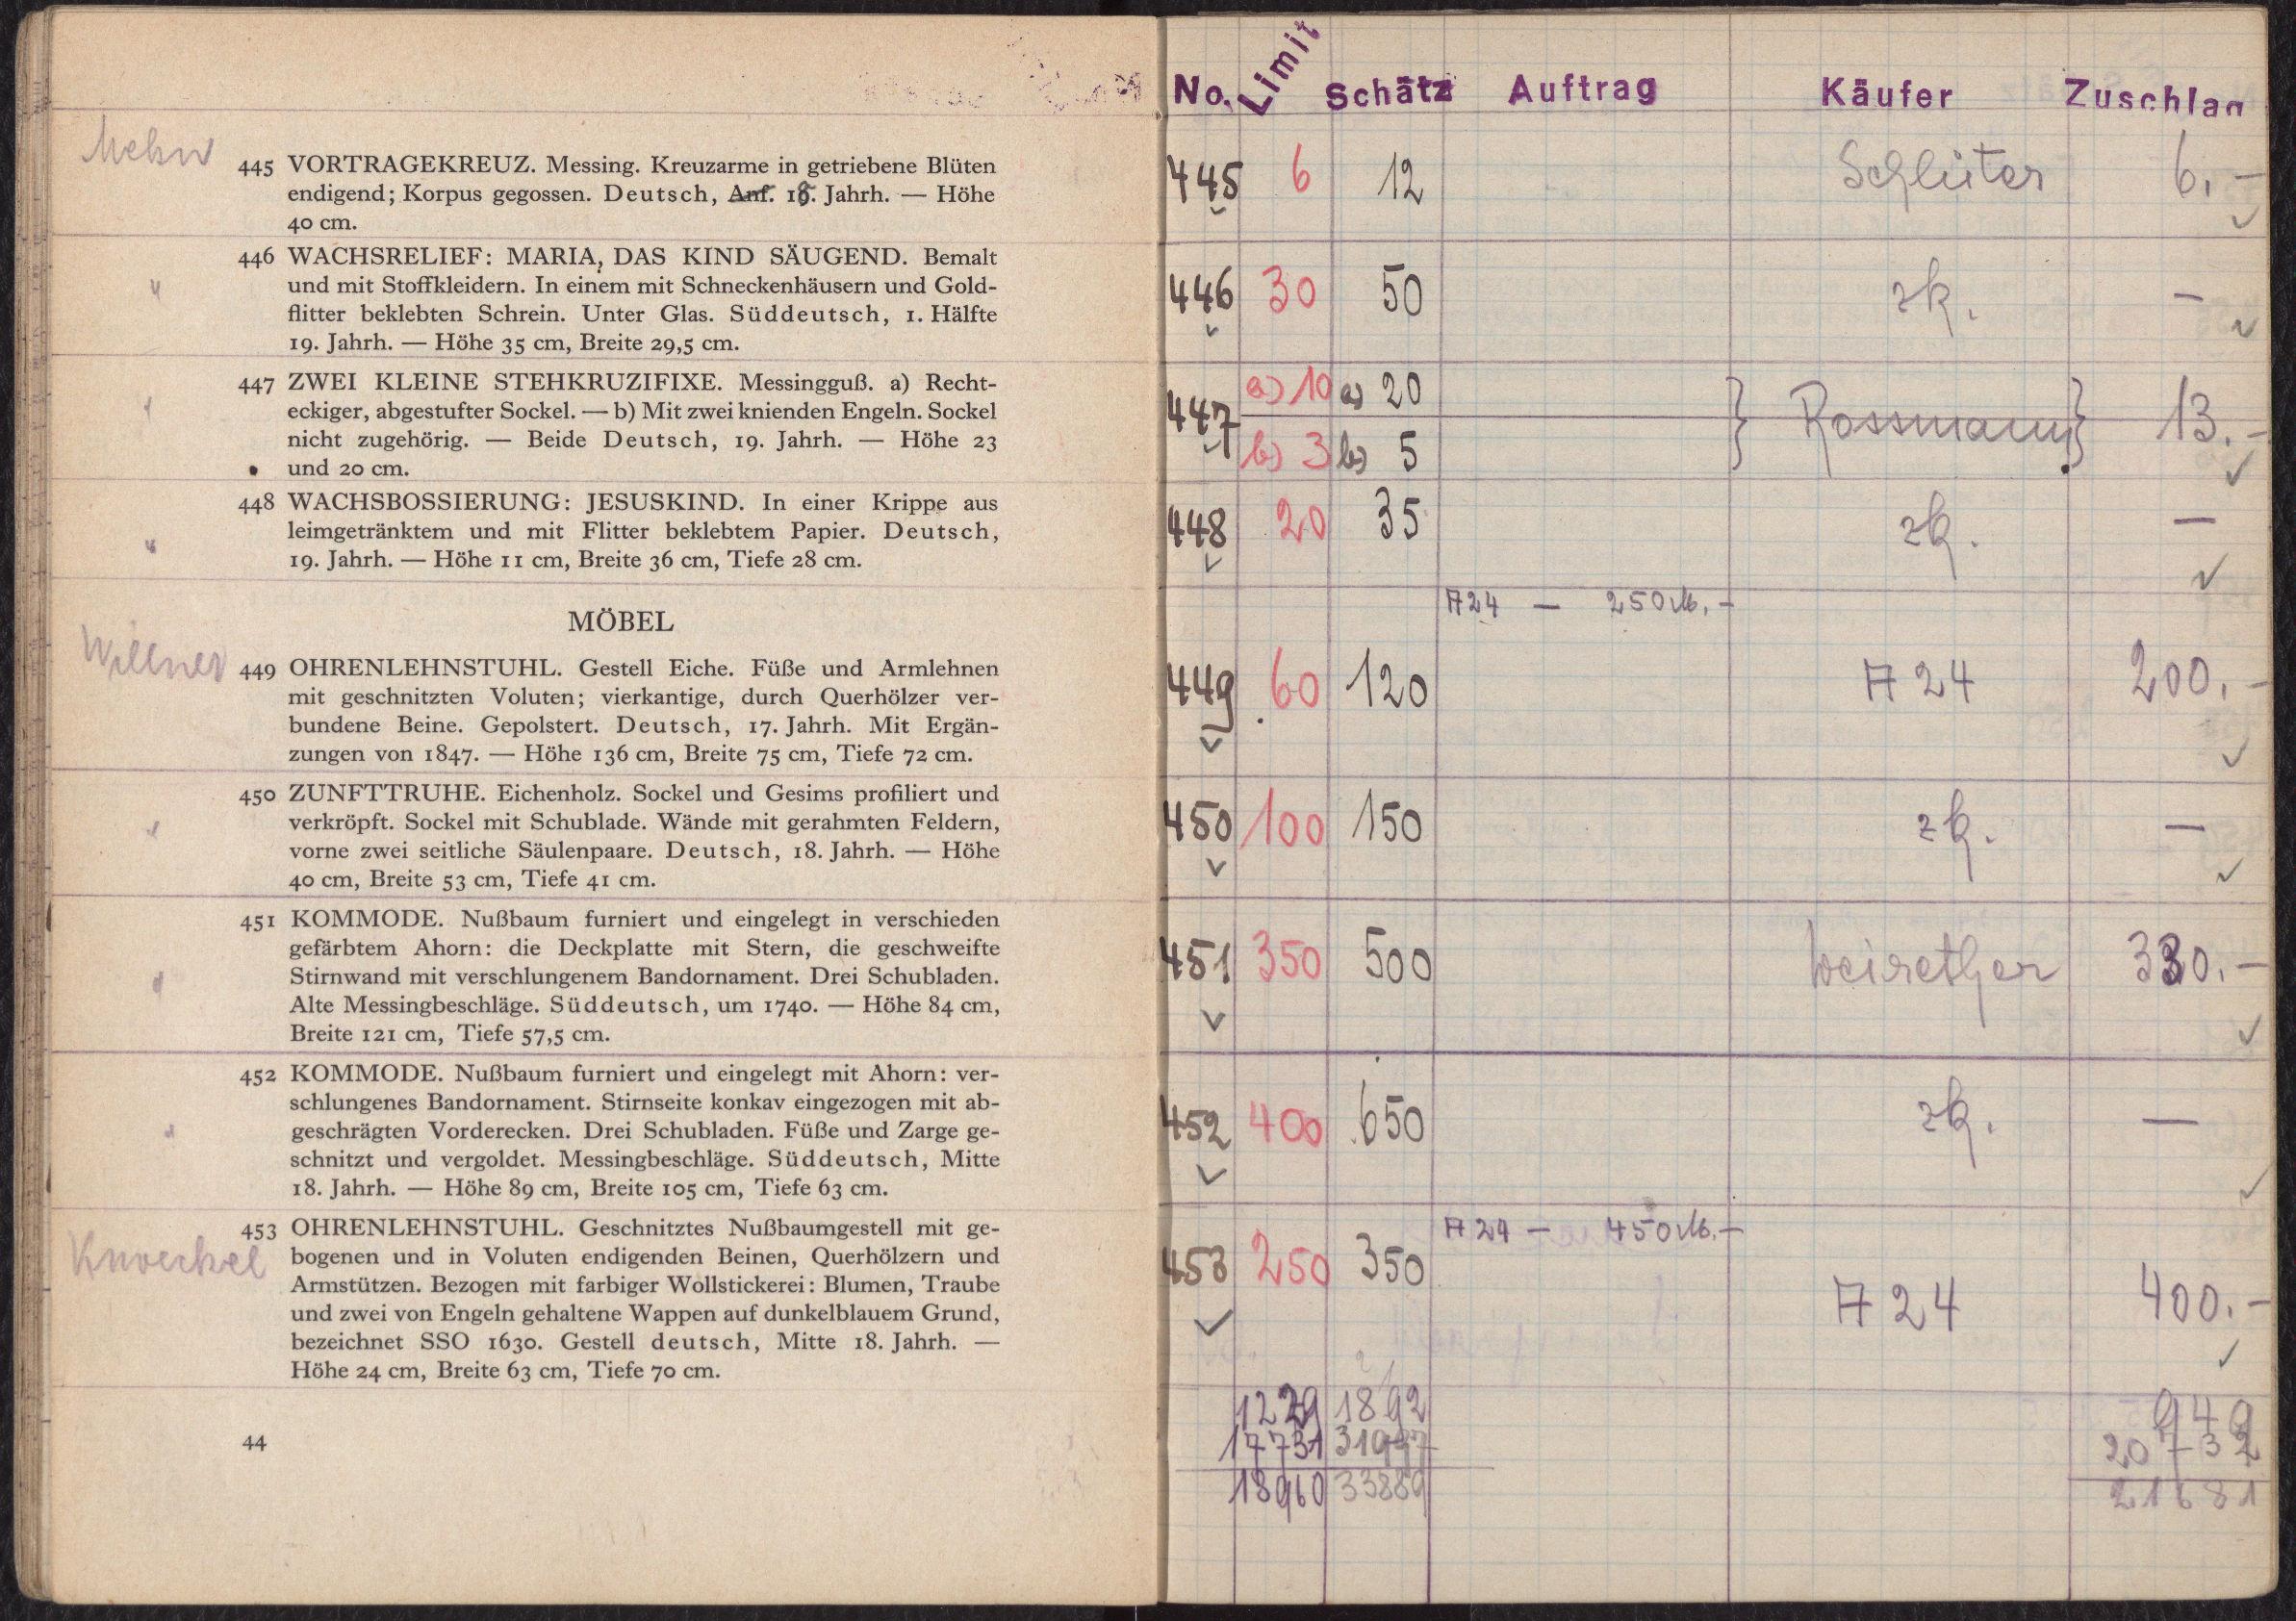 Mehn
445 VORTRAGEKREUZ. Messing. Kreuzarme in getriebene Blüten
endigend; Korpus gegossen. Deutsch, Anf. 18. Jahrh. — Höhe
40 cm.
446 WACHSRELIEF: MARIA, DAS KIND SÄUGEND. Bemalt
und mit Stoffkleidern. In einem mit Schneckenhäusern und Gold-
flitter beklebten Schrein. Unter Glas. Süddeutsch, 1. Hälfte
19. Jahrh. — Höhe 35 cm, Breite 29,5 cm.
447 ZWEI KLEINE STEHKRUZIFIXE. Messingguß. a) Recht-
eckiger, abgestufter Sockel. — b) Mit zwei knienden Engeln. Sockel
nicht zugehörig. — Beide Deutsch, 19. Jahrh. — Höhe 23
und 20 cm.
448 WACHSBOSSIERUNG: JESUSKIND. In einer Krippe aus
leimgetränktem und mit Flitter beklebtem Papier. Deutsch,
19. Jahrh. — Höhe 11 cm, Breite 36 cm, Tiefe 28 cm.
MÖBEL
Willner
449 OHRENLEHNSTUHL. Gestell Eiche. Füße und Armlehnen
mit geschnitzten Voluten; vierkantige, durch Querhölzer ver-
bundene Beine. Gepolstert. Deutsch, 17. Jahrh. Mit Ergän-
zungen von 1847. — Höhe 136 cm, Breite 75 cm, Tiefe 72 cm.
450 ZUNFTTRUHE. Eichenholz. Sockel und Gesims profiliert und
verkröpft. Sockel mit Schublade. Wände mit gerahmten Feldern,
vorne zwei seitliche Säulenpaare. Deutsch, 18. Jahrh. — Höhe
40 cm, Breite 53 cm, Tiefe 41 cm.
451 KOMMODE. Nußbaum furniert und eingelegt in verschieden
gefärbtem Ahorn: die Deckplatte mit Stern, die geschweifte
Stirnwand mit verschlungenem Bandornament. Drei Schubladen.
Alte Messingbeschläge. Süddeutsch, um 1740. — Höhe 84 cm,
Breite 121 cm, Tiefe 57,5 cm.
452 KOMMODE. Nußbaum furniert und eingelegt mit Ahorn: ver-
schlungenes Bandornament. Stirnseite konkav eingezogen mit ab-
geschrägten Vorderecken. Drei Schubladen. Füße und Zarge ge-
schnitzt und vergoldet. Messingbeschläge. Süddeutsch, Mitte
18. Jahrh. — Höhe 89 cm, Breite 105 cm, Tiefe 63 cm.
Knoeckel
453 OHRENLEHNSTUHL. Geschnitztes Nußbaumgestell mit ge-
bogenen und in Voluten endigenden Beinen, Querhölzern und
Armstützen. Bezogen mit farbiger Wollstickerei: Blumen, Traube
und zwei von Engeln gehaltene Wappen auf dunkelblauem Grund,
bezeichnet SSO 1630. Gestell deutsch, Mitte 18. Jahrh. —
Höhe 24 cm, Breite 63 cm, Tiefe 70 cm.
44
No. Limit Schätz Auftrag Käufer Zuschlag
445 6 12 Schlüter 6.–
446 30 50 zk. –
447 a) 10 a) 20 Rossmann 13.–
b) 3 b) 5
448 20 35 zk. –
A 24 — 250 M.–
449 60 120 A 24 200.–
450 100 150 zk. –
451 350 500 Weirether 330.–
452 400 650 zk. –
A 24 — 450 M.–
453 250 350 A 24 400.–
1229 1892 949
17731 31997 20732
18960 33889 21681